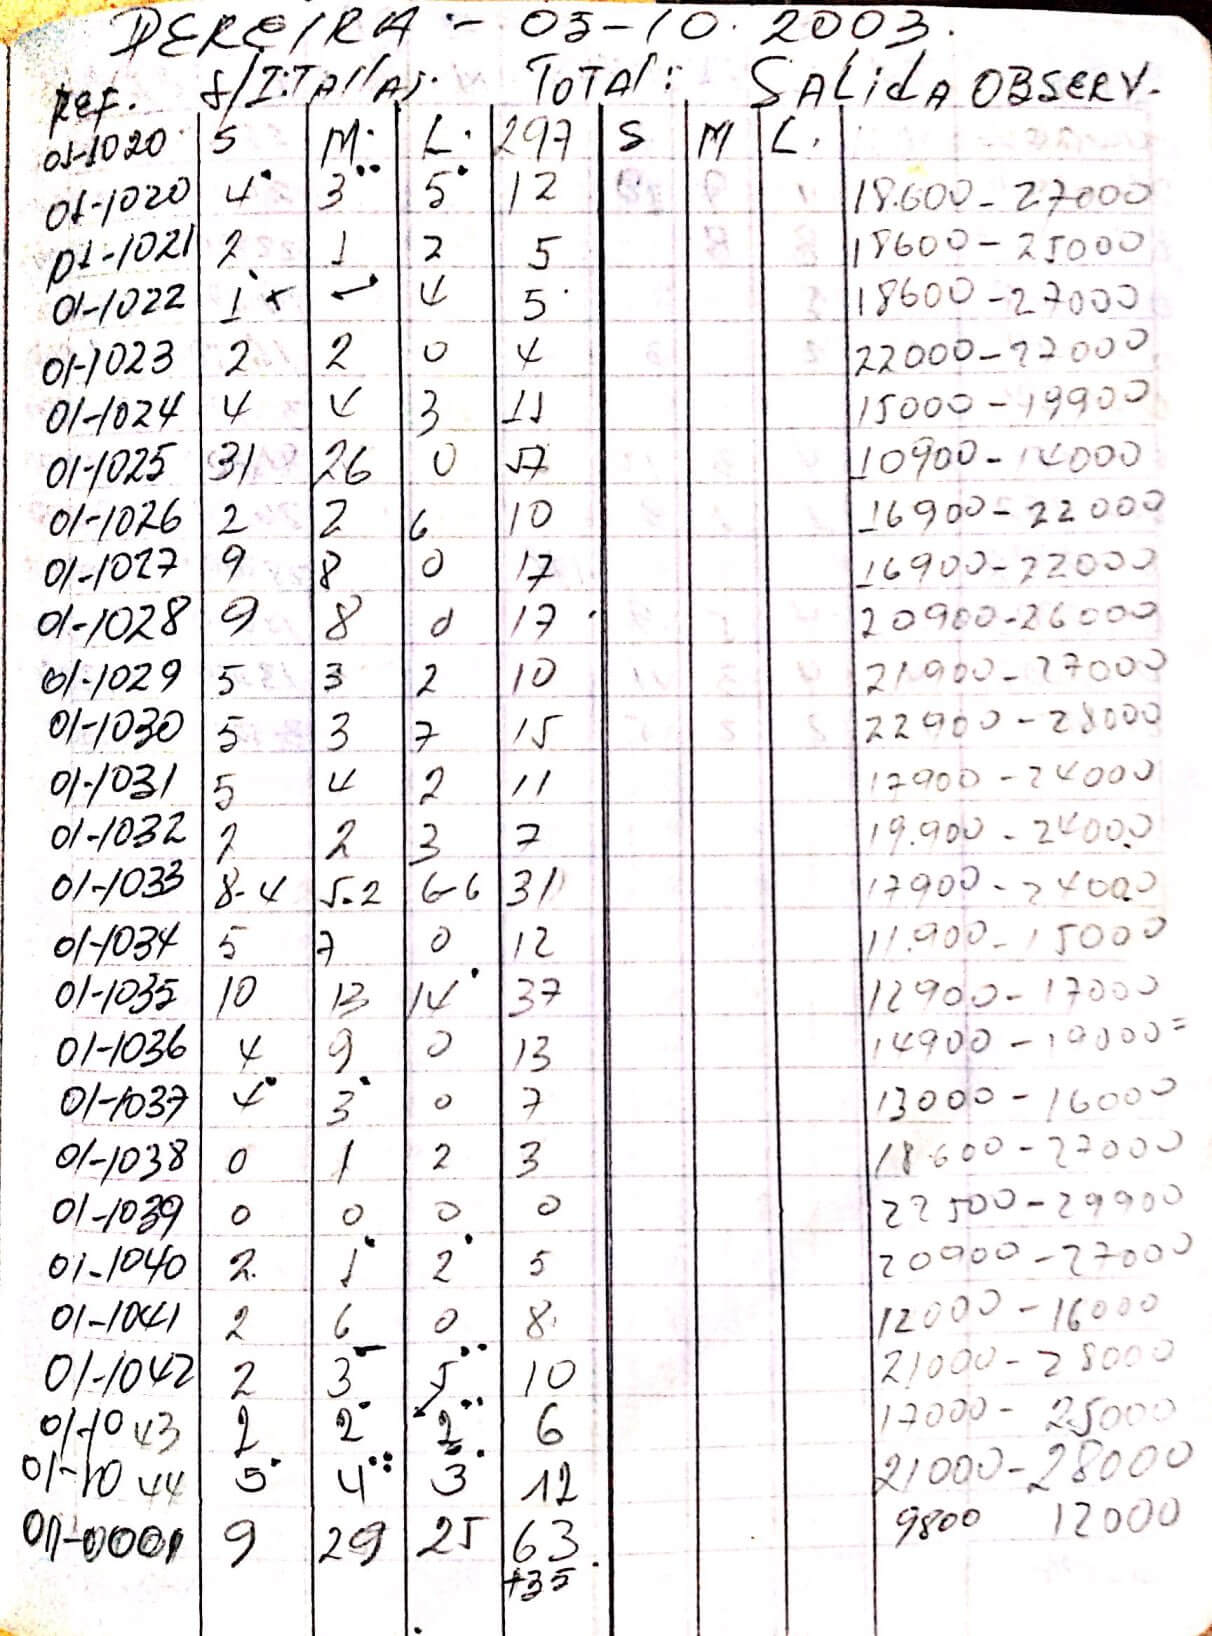 PEREIRA - 03-10. 2003.
Ref. S/I:TAllAs. TOTAl: SALidA OBSERV.
01-1020 S M. L. 297 S M L.
01-1020 4 3 5 12 18.600-27000
01-1021 2 1 2 5 18600-25000
01-1022 1 x - 4 5 18600-27000
01-1023 2 2 0 4 22000-27000
01-1024 4 4 3 11 15000-19900
01-1025 31 26 0 57 10900-14000
01-1026 2 2 6 10 16900-22000
01-1027 9 8 0 17 16900-22000
01-1028 9 8 0 17 20900-26000
01-1029 5 3 2 10 21900-27000
01-1030 5 3 7 15 22900-28000
01-1031 5 4 2 11 17900-24000
01-1032 2 2 3 7 19.900-24000
01-1033 8-4 5-2 6-6 31 17900-24000
01-1034 5 7 0 12 11.900-15000
01-1035 10 13 14 37 12900-17000
01-1036 4 9 0 13 14900-19000=
01-1037 4 3 0 7 13000-16000
01-1038 0 1 2 3 18.600-27000
01-1039 0 0 0 0 22500-29900
01-1040 2. 1 2 5 20900-27000
01-1041 2 6 0 8. 12000-16000
01-1042 2 3 5 10 21000-28000
01-1043 2 2 2 6 17000-25000
01-1044 5 4 3 12 21000-28000
01-0001 9 29 25 63 9800 12000
+35.